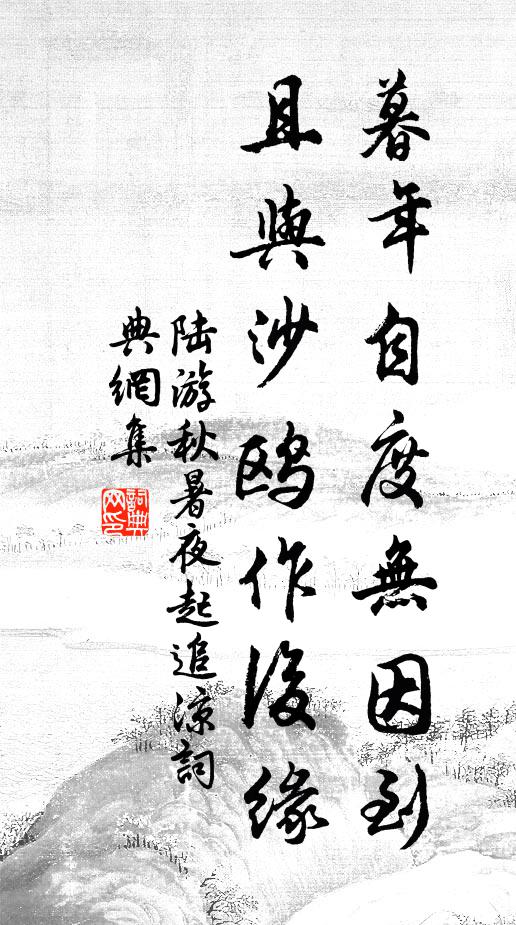 暮年自度無因到
且與沙鷗作後緣
陸游秋暑夜起追涼詞
典網集
詞典
网印